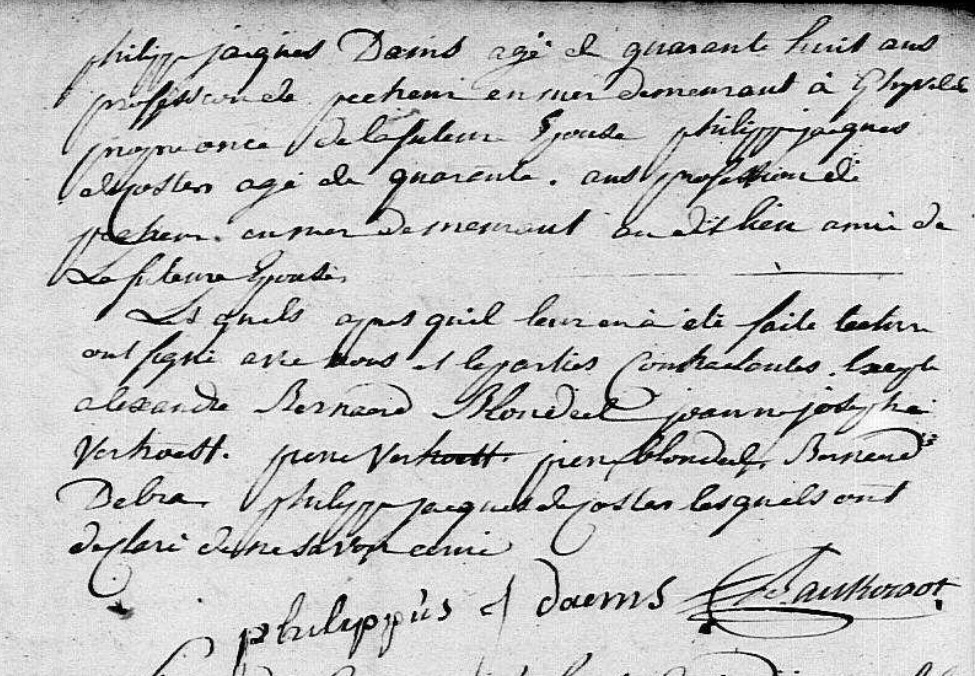 philipp jacques Dams agé de quarante huit ans
profession de pecheur en mer demeurant à Ghyvelde
de la future Epouse philipp jacques
decoster agé de quarante. ans profession de
pecheur. en mer demeurant au dit lieu amie de
La future Epouse.
Les quels apres qu'il leur en à été faite lecture
ont signé avec nous et le parties Contractantes. Excepte
alexandre Bernaerd Blondeel joanne josephe
Verhoett. piere Verhoett. piere blondeel, Bernaerd
Debra philipp jacques decoster lesquels ont
declaré de ne savoir ecrire
philippus J daems